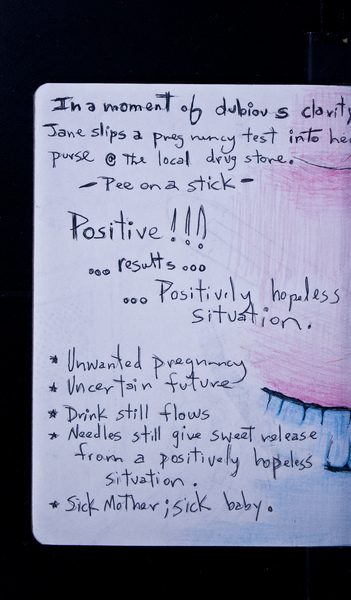 In a moment of dubious clarity
Jane slips a pregnancy test into her
purse @ the local drug store.
- Pee on a stick -
Positive!!!
... results ...
... Positively hopeless
situation.
* Unwanted pregnancy
* Uncertain future
* Drink still flows
* Needles still give sweet release
from a positively hopeless
situation.
* Sick Mother; sick baby.